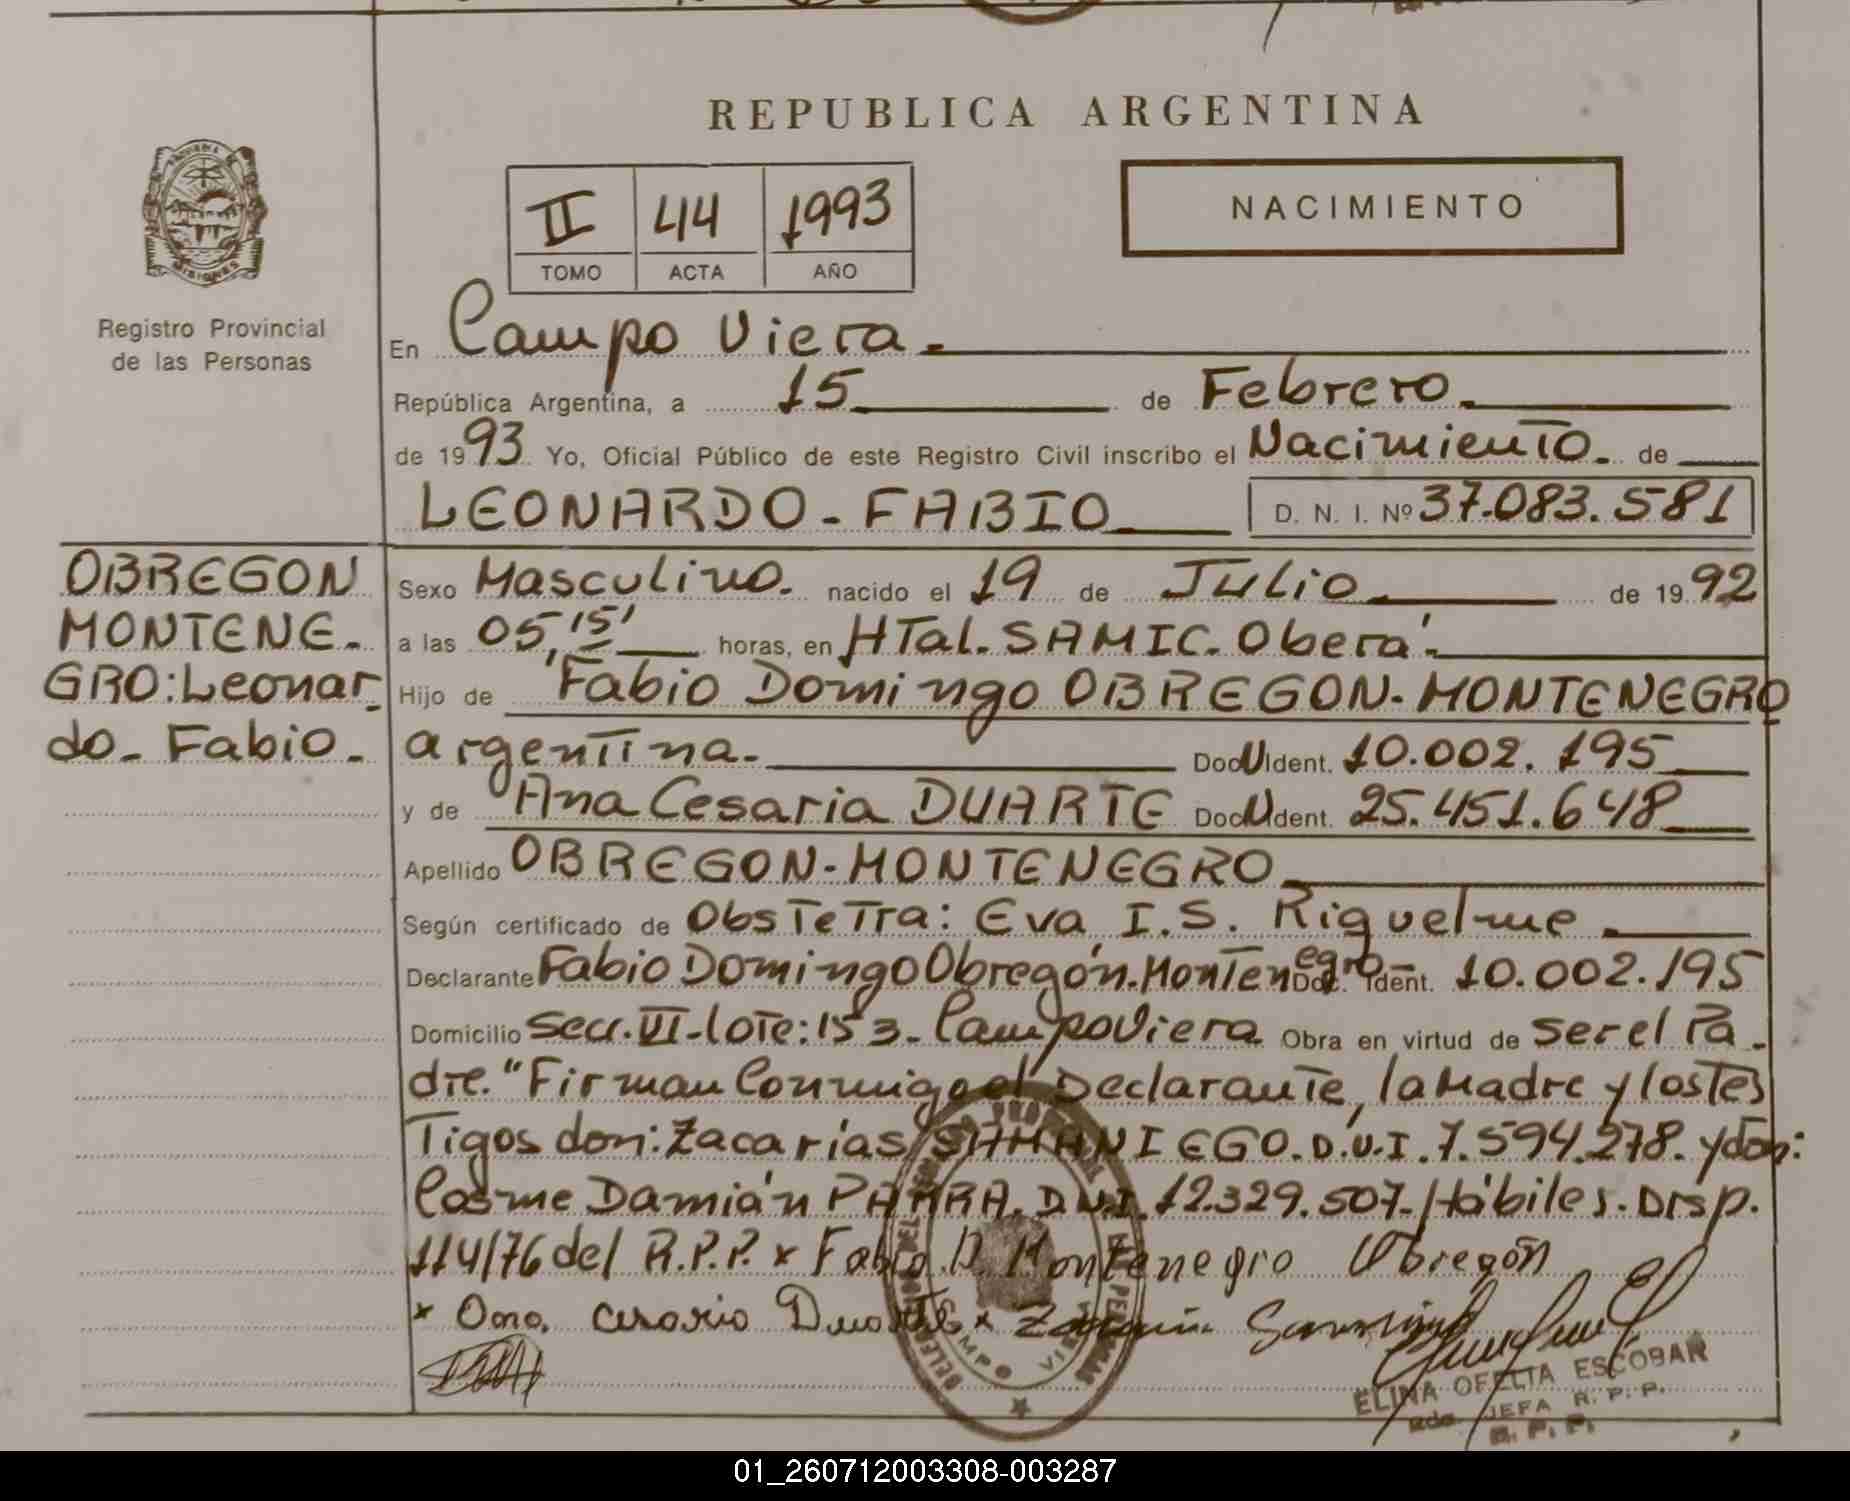 REPUBLICA ARGENTINA
PROVINCIA DE
MISIONES
Registro Provincial
de las Personas
II 44 1993
TOMO ACTA AÑO
NACIMIENTO
En Campo Viera.
República Argentina, a 15 de Febrero.
de 1993 Yo, Oficial Público de este Registro Civil inscribo el Nacimiento. de
LEONARDO - FABIO D. N. I. Nº 37.083.581
OBREGON
MONTENE-
GRO: Leonar-
do - Fabio.
Sexo Masculino. nacido el 19 de Julio de 1992
a las 05,15' horas, en HTal. SAMIC. Oberá.
Hijo de Fabio Domingo OBREGON-MONTENEGRO
argentina. Doc U Ident. 10.002.195
y de Ana Cesaria DUARTE Doc U Ident. 25.451.648
Apellido OBREGON-MONTENEGRO
Según certificado de ObsTeTra: Eva I.S. Riquelme.
Declarante Fabio Domingo Obregón-Montenegro Doc. Ident. 10.002.195
Domicilio Secc. VI-loTe: 153- Campo Viera. Obra en virtud de ser el Pa-
dre. "Firman Conmigo el Declarante, la Madre y los Tes
Tigos don: Zacarías SAMANIEGO. D.U.I. 7.594.278. y don:
Cosme Damián PARRA. D.N.I. 12.329.507. Hábiles. Disp.
114/76 del R.P.P. x Fabio D. Montenegro Obregón
x Ana Cesaria Duarte x
ELINA OFELIA ESCOBAR
JEFA R. P. P.
R. P. P.
01_260712003308-003287